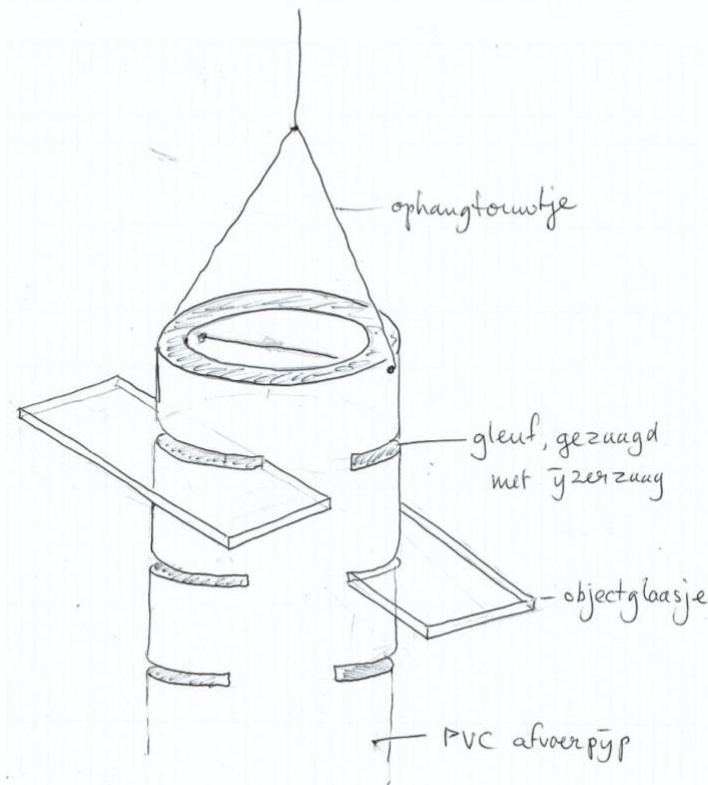 ophangtouwtje
gleuf, gezaagd
met ijzerzaag
objectglaasje
PVC afvoerpijp